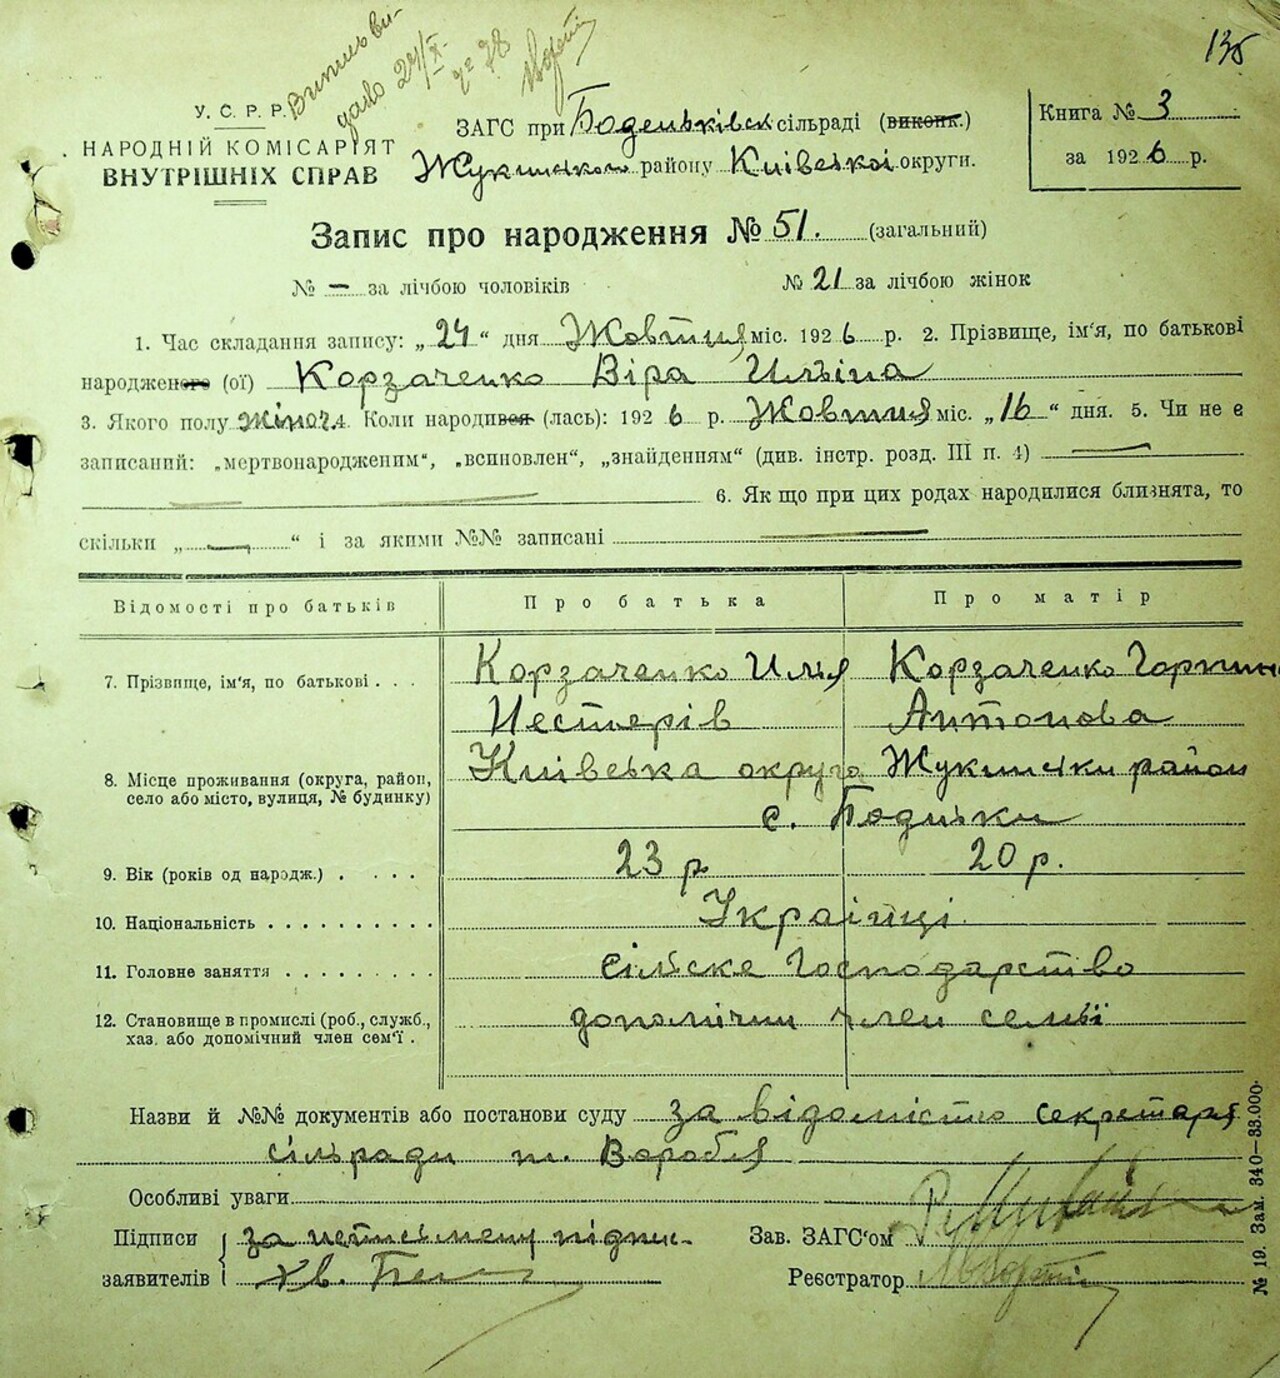 135
Випись ви-
дано 24/X-
У. С. Р. Р.
НАРОДНІЙ КОМІСАРІЯТ
ВНУТРІШНІХ СПРАВ
ЗАГС при Боденьківск сільраді (виконк.)
Жукинськом району Київської округи.
Книга № 3
за 1926 р.
Запис про народження № 51. (загальний)
№ — за лічбою чоловіків № 21 за лічбою жінок
1. Час складання запису: „24“ дня Жовтня міс. 1926 р. 2. Прізвище, ім'я, по батькові
народженого (ої) Корзаченко Віра Ильїна
3. Якого полу жіноч. 4. Коли народився (лась): 1926 р. Жовтня міс. „16“ дня. 5. Чи не є
записаний: „мертвонародженим“, „всиновлен“, „знайденням“ (див. інстр. розд. III п. 4) —
6. Як що при цих родах народилися близнята, то
скільки „—“ і за якими №№ записані —
Відомості про батьків Про батька Про матір
7. Прізвище, ім'я, по батькові . . . Корзаченко Илья Корзаченко Горпина
Нестерів Антонова
8. Місце проживання (округа, район, село або місто, вулиця, № будинку) Київська округа Жукинськи район
с. Бодиньки
9. Вік (років од народж.) . . . . . 23 р 20 р.
10. Національність . . . . . . . . . . Українці
11. Головне заняття . . . . . . . . . сільске Господарство
12. Становище в промислі (роб., служб., хаз. або допомічний член сем'ї . допомічни член семьї
Назви й №№ документів або постанови суду за відомістю секретаря
сільради т. Воробья
Особливі уваги
Підписи за неписьмену підпис-
заявителів
Зав. ЗАГС'ом
Реєстратор
№ 19. Зам. 340—33.000-